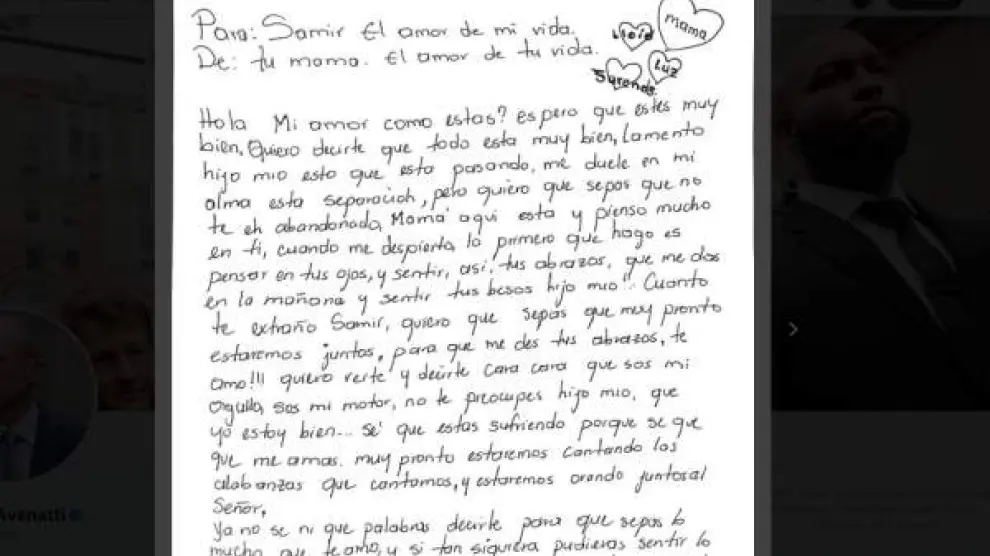 Para: Samir El amor de mi vida.
De: tu mama. El amor de tu vida.
mama
Luz
Hola Mi amor como estas? espero que estes muy
bien, Quiero decirte que todo esta muy bien, Lamento
hijo mio esto que esta pasando, me duele en mi
alma esta separacion, pero quiero que sepas que no
te eh abandonado, Mamá aqui esta y pienso mucho
en ti, cuando me despierto, lo primero que hago es
pensar en tus ojos, y sentir, asi, tus abrazos, que me das
en la mañana y sentir tus besos hijo mio!! Cuanto
te extraño Samir, quiero que sepas que muy pronto
estaremos juntos, para que me des tus abrazos, te
amo!!! quiero verte y decirte cara cara que sos mi
Orgullo, sos mi motor, no te preocupes hijo mio, que
yo estoy bien... sé que estas sufriendo porque se que
que me amas. muy pronto estaremos cantando las
alabanzas que cantamos, y estaremos orando juntos al
Señor,
Ya no se ni que palabras decirte para que sepas lo
mucho que te amo, y si tan siquiera pudieras sentir lo
Avenatti